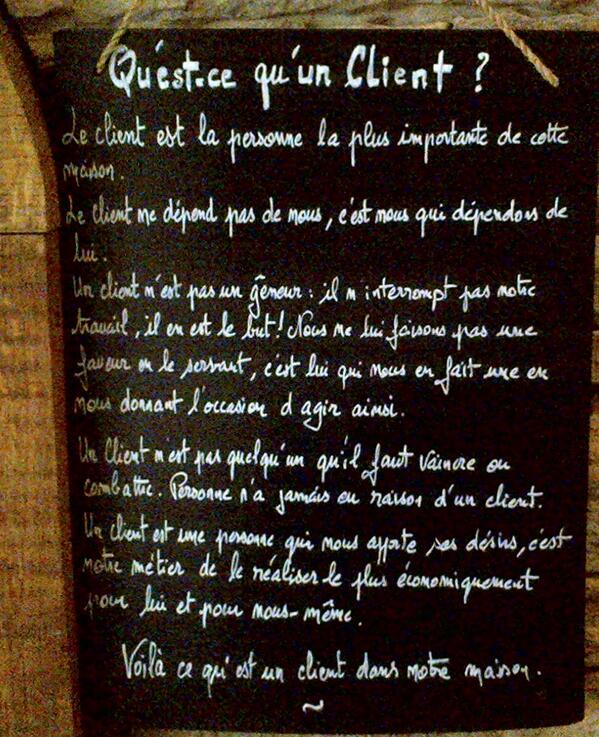 Qu'est-ce qu'un Client ?
Le client est la personne la plus importante de cette
maison.
Le Client ne dépend pas de nous, c'est nous qui dépendons de
lui.
Un client n'est pas un gêneur : il n interrompt pas notre
travail, il en est le but ! Nous ne lui faisons pas une
faveur en le servant, c'est lui qui nous en fait une en
nous donnant l'occasion d agir ainsi.
Un Client n'est pas quelqu'un qu'il faut vaincre ou
combattre. Personne n'a jamais eu raison d'un client.
Un client est une personne qui nous apporte ses désirs, c'est
notre métier de le réaliser le plus économiquement
pour lui et pour nous-même.
Voilà ce qu'est un client dans notre maison.
~